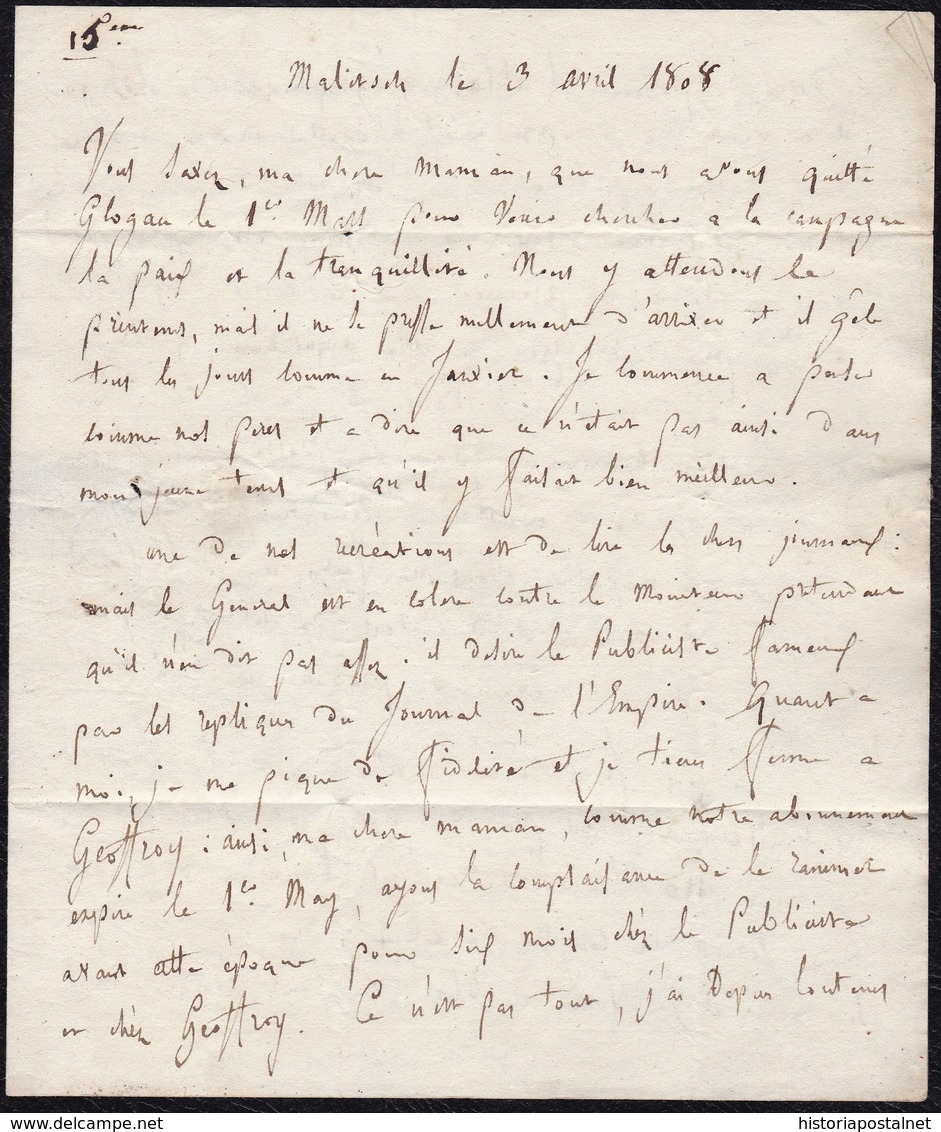 15eme
Malitsch le 3 avril 1808
Vous savez, ma chere maman, que nous avons quitté
Glogau le 1er Mars pour venir chercher a la campagne
la paix et la tranquillité. Nous y attendons le
printems, mais il ne se presse nullement d'arriver et il gêle
tous les jours comme en Janvier. Je commence a parler
comme nos peres et a dire que ce n'etait pas ainsi dans
mon jeune tems et qu'il y faisait bien meilleur.
une de nos recréations est de lire les chers journaux :
mais le General est en colere contre le Moniteur prétendant
qu'il n'en dit pas assez. il desire le Publiciste fameux
par les repliques du Journal de l'Empire. Quant a
moi, je me pique de fidelité et je tiens ferme a
Geoffroy : ainsi, ma chere maman, comme notre abonnement
expire le 1er May, ayons la complaisance de le ranimer
avant cette époque pour six mois chéz le Publiciste
et chéz Geoffroy. Ce n'est pas tout, j'ai depuis
historiapostalnet
www.delcampe.net